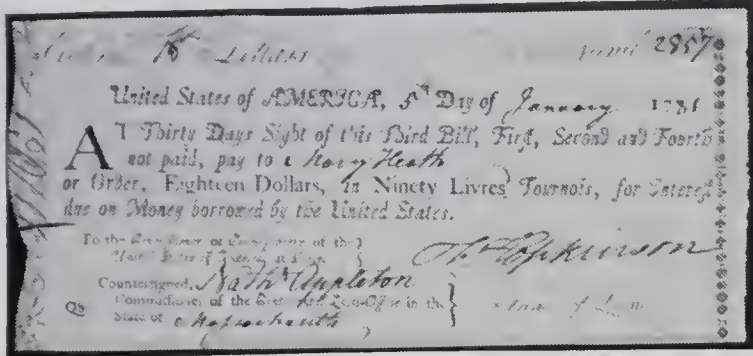 18 Dollars 2857
United States of AMERICA, 5th Day of January 1781
AT Thirty Days Sight of this Third Bill, First, Second and Fourth
not paid, pay to Mary Heath
or Order, Eighteen Dollars, in Ninety Livres Tournois, for Interest
due on Money borrowed by the United States.
To the or of the
United States of at
Countersigned, Nath Appleton
Commissioner of the Loan-Office in the
State of Massachusetts
Hopkinson
of Loans